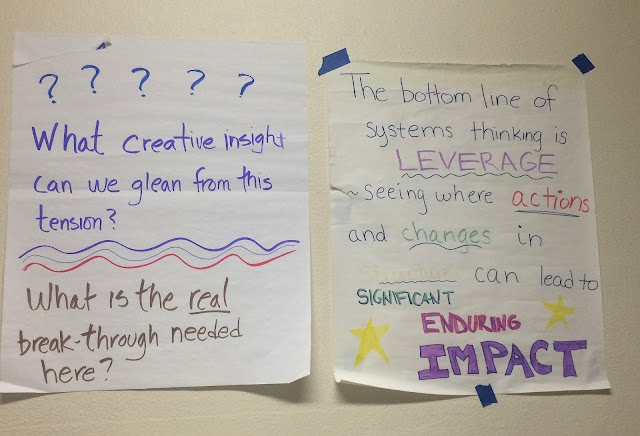 ? ? ? ? ?
What creative insight
can we glean from this
tension?
What is the real
break-through needed
here?
The bottom line of
systems thinking is
LEVERAGE
~ Seeing where actions
and changes in
can lead to
SIGNIFICANT
ENDURING
IMPACT